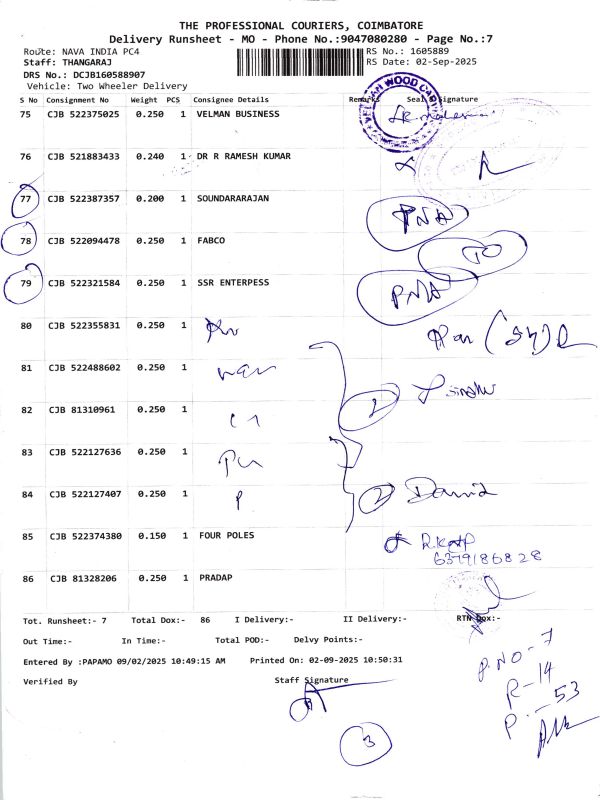 THE PROFESSIONAL COURIERS, COIMBATORE
Delivery Runsheet - MO - Phone No.:9047080280 - Page No.:7
Route: NAVA INDIA PC4 RS No.: 1605889
Staff: THANGARAJ RS Date: 02-Sep-2025
DRS No.: DCJB160588907
Vehicle: Two Wheeler Delivery
S No Consignment No Weight PCS Consignee Details Remarks Seal & Signature
75 CJB 522375025 0.250 1 VELMAN BUSINESS
76 CJB 521883433 0.240 1 DR R RAMESH KUMAR
77 CJB 522387357 0.200 1 SOUNDARARAJAN PNA
78 CJB 522094478 0.250 1 FABCO TO
79 CJB 522321584 0.250 1 SSR ENTERPESS PNA
80 CJB 522355831 0.250 1
81 CJB 522488602 0.250 1
82 CJB 81310961 0.250 1 2
83 CJB 522127636 0.250 1
84 CJB 522127407 0.250 1 P 2 David
85 CJB 522374380 0.150 1 FOUR POLES
6379186828
86 CJB 81328206 0.250 1 PRADAP
Tot. Runsheet:- 7 Total Dox:- 86 I Delivery:- II Delivery:- RTN Dox:-
Out Time:- In Time:- Total POD:- Delvy Points:-
Entered By :PAPAMO 09/02/2025 10:49:15 AM Printed On: 02-09-2025 10:50:31
Verified By Staff Signature
P.NO-7
R-14
P.-53
3